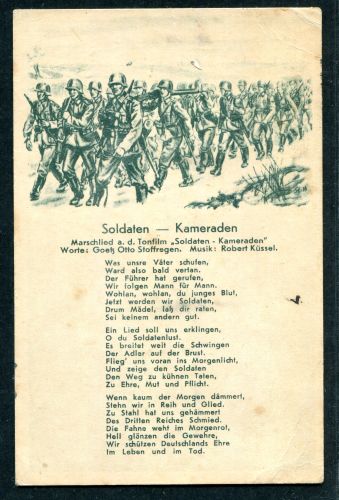 Soldaten — Kameraden
Marschlied a. d. Tonfilm „Soldaten - Kameraden"
Worte: Goetz Otto Stoffregen. Musik: Robert Küssel.
Was unsre Väter schufen,
Ward also bald vertan.
Der Führer hat gerufen,
Wir folgen Mann für Mann.
Wohlan, wohlan, du junges Blut,
Jetzt werden wir Soldaten,
Drum Mädel, laß dir raten,
Sei keinem andern gut.
Ein Lied soll uns erklingen,
O du Soldatenlust.
Es breitet weit die Schwingen
Der Adler auf der Brust.
Flieg' uns voran ins Morgenlicht,
Und zeige den Soldaten
Den Weg zu kühnen Taten,
Zu Ehre, Mut und Pflicht.
Wenn kaum der Morgen dämmert,
Stehn wir in Reih und Glied.
Zu Stahl hat uns gehämmert
Des Dritten Reiches Schmied.
Die Fahne weht im Morgenrot,
Hell glänzen die Gewehre,
Wir schützen Deutschlands Ehre
Im Leben und im Tod.